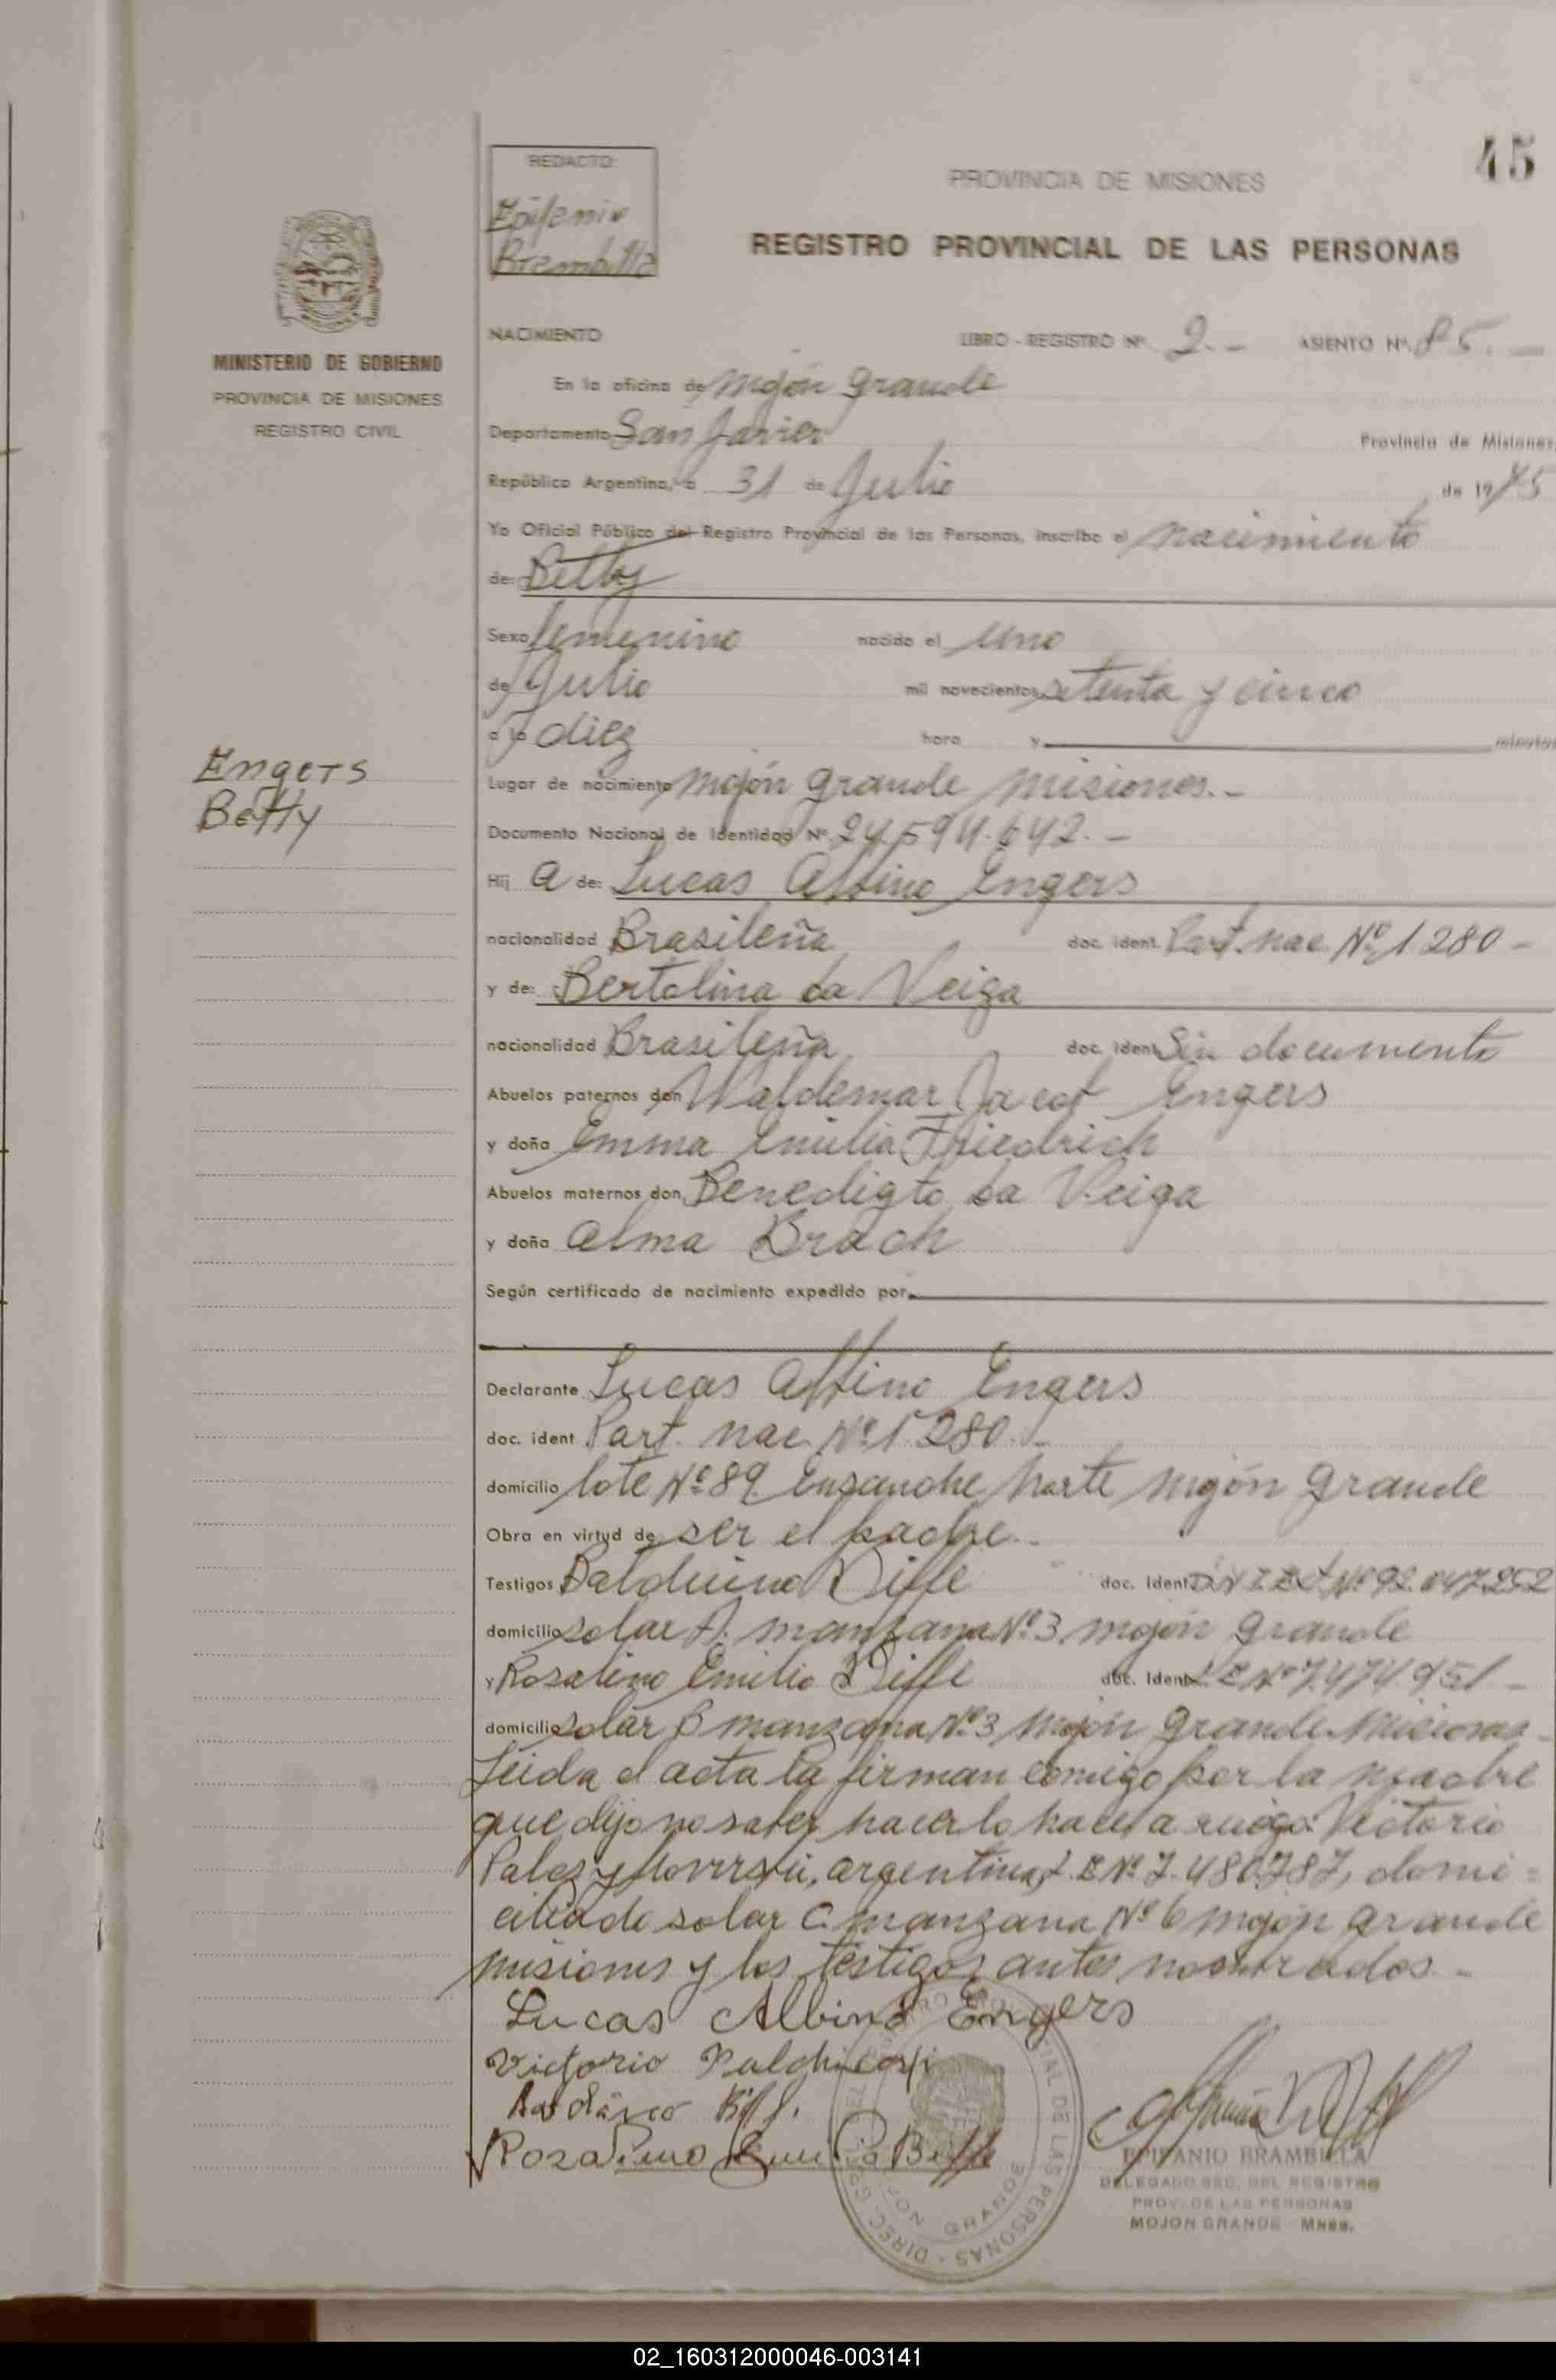 45
REDACTO:
Epifanio
Brambilla
PROVINCIA DE MISIONES
REGISTRO PROVINCIAL DE LAS PERSONAS
MISIONES
MINISTERIO DE GOBIERNO
PROVINCIA DE MISIONES
REGISTRO CIVIL
NACIMIENTO LIBRO - REGISTRO Nº 2.- ASIENTO Nº 85.-
En la oficina de Mojón Grande
Departamento San Javier Provincia de Misiones,
República Argentina, a 31 de Julio de 1975
Yo Oficial Público del Registro Provincial de las Personas, inscribo el nacimiento
de: Betty
Sexo femenino nacido el uno
de Julio mil novecientos setenta y cinco
a las diez hora y minutos
Engers
Betty
Lugar de nacimiento Mojón Grande Misiones.-
Documento Nacional de Identidad Nº 24.594.642.-
Hij a de: Lucas Albino Engers
nacionalidad Brasileña doc. ident. Part. nac. Nº 1280-
y de: Bertolina da Veiga
nacionalidad Brasileña doc. ident. Sin documento
Abuelos paternos don Waldemar Jacob Engers
y doña Emma Emilia Friedrich
Abuelos maternos don Benedigto da Veiga
y doña Alma Brach
Según certificado de nacimiento expedido por
Declarante Lucas Albino Engers
doc. ident. Part. nac. Nº 1280.-
domicilio lote Nº 89 Ensanche Norte Mojón Grande
Obra en virtud de ser el padre.-
Testigos Balduino Biffe doc. ident. D.N.I. Ext. Nº 92.047.252
domicilio solar A. manzana Nº 3 Mojón Grande
y Rosalino Emilio Biffe doc. ident. L.E. Nº 7.474.951-
domicilio solar B manzana Nº 3 Mojón Grande Misiones-
Leida el acta la firman comigo por la madre
que dijo no saber hacerlo hace a ruego: Victorio
argentino, L.E. Nº 7.480.787, domi=
ciliado solar C. manzana Nº 6 Mojón Grande
Misiones y los testigos antes nombrados.-
Lucas Albino Engers
Victorio
Rosalino Emilio Biffe
EPIFANIO BRAMBILLA
DELEGADO SEC. DEL REGISTRO
PROV. DE LAS PERSONAS
MOJON GRANDE Mnes.
02_160312000046-003141